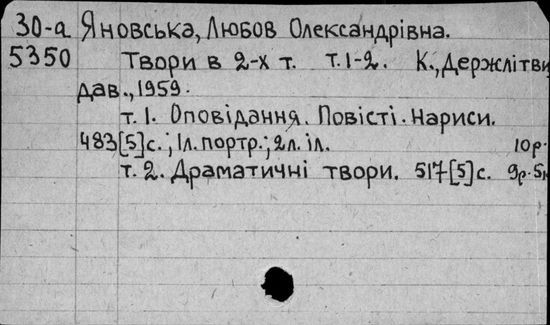 30-а Яновська, Любов Олександрівна.
5350 Твори в 2-х т. т.1-2. К., Держлітви
дав., 1959.
т. 1. Оповідання. Повісті. Нариси.
483[5]с.; 1л. портр.; 2л. іл. 10р.
т. 2. Драматичні твори. 517[5]с. 9р. 5